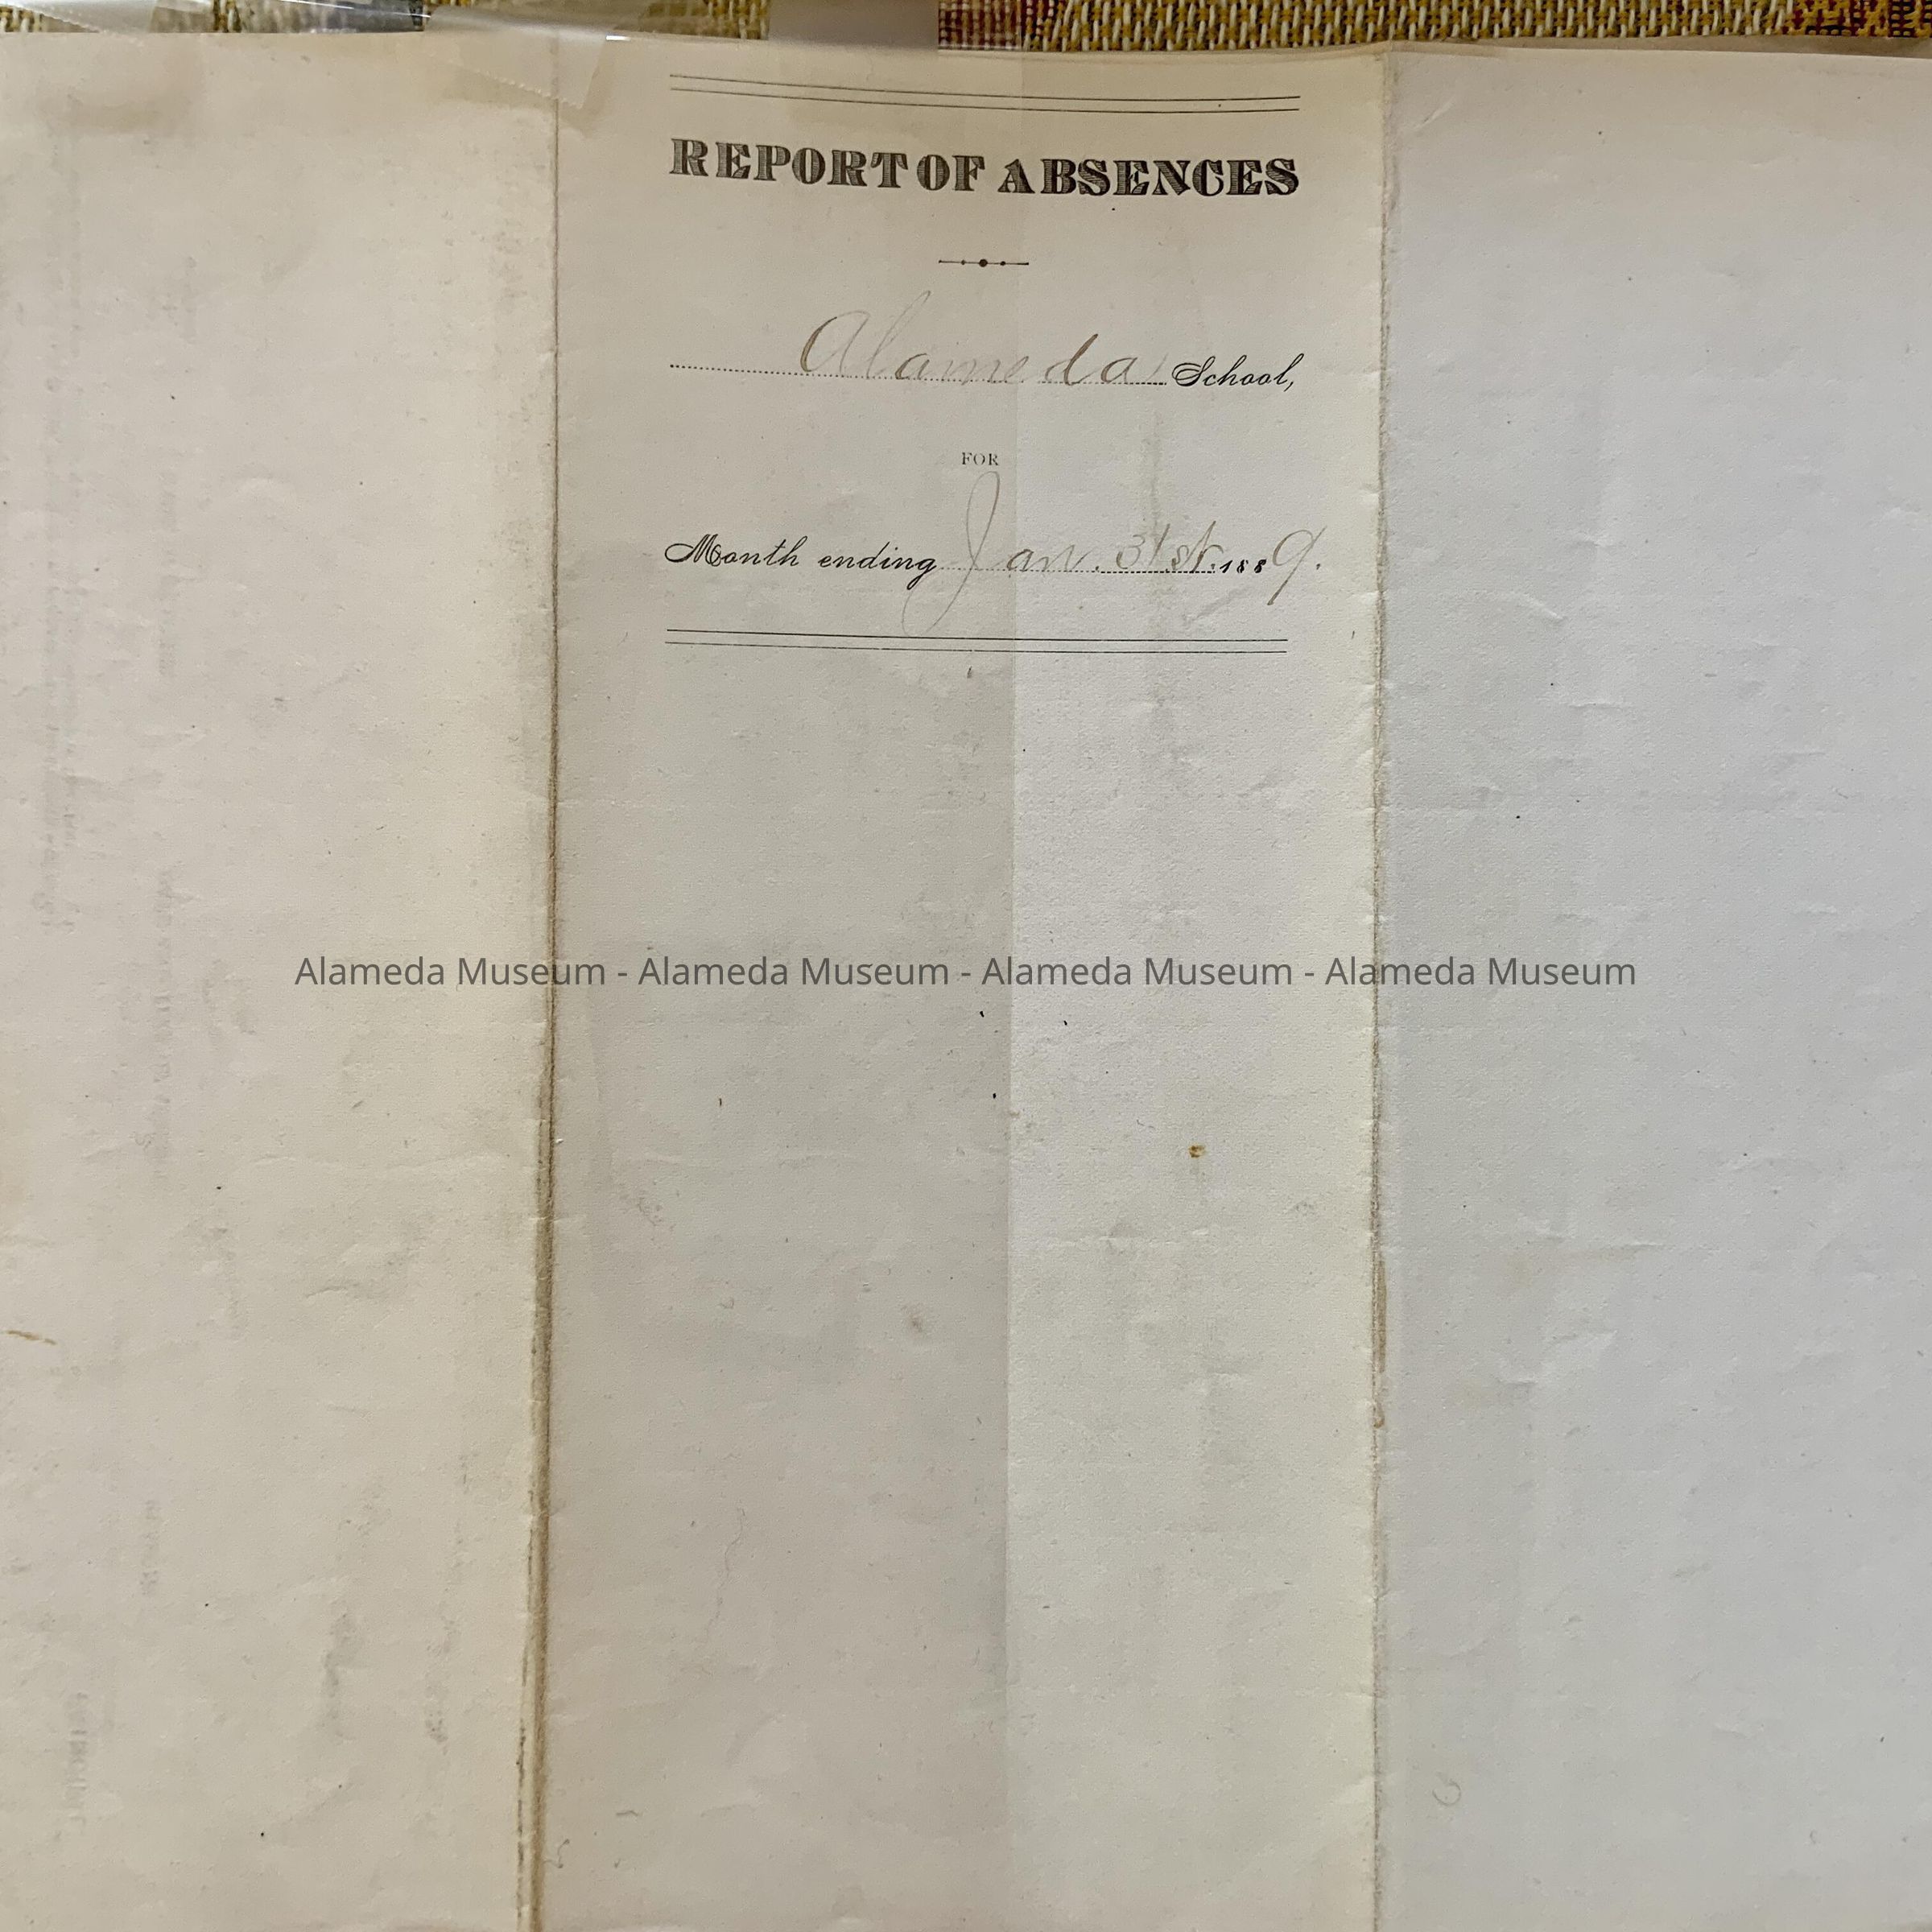 REPORT OF ABSENCES
Alameda School,
FOR
Month ending Jan. 31st. 1889.
Alameda Museum - Alameda Museum - Alameda Museum - Alameda Museum